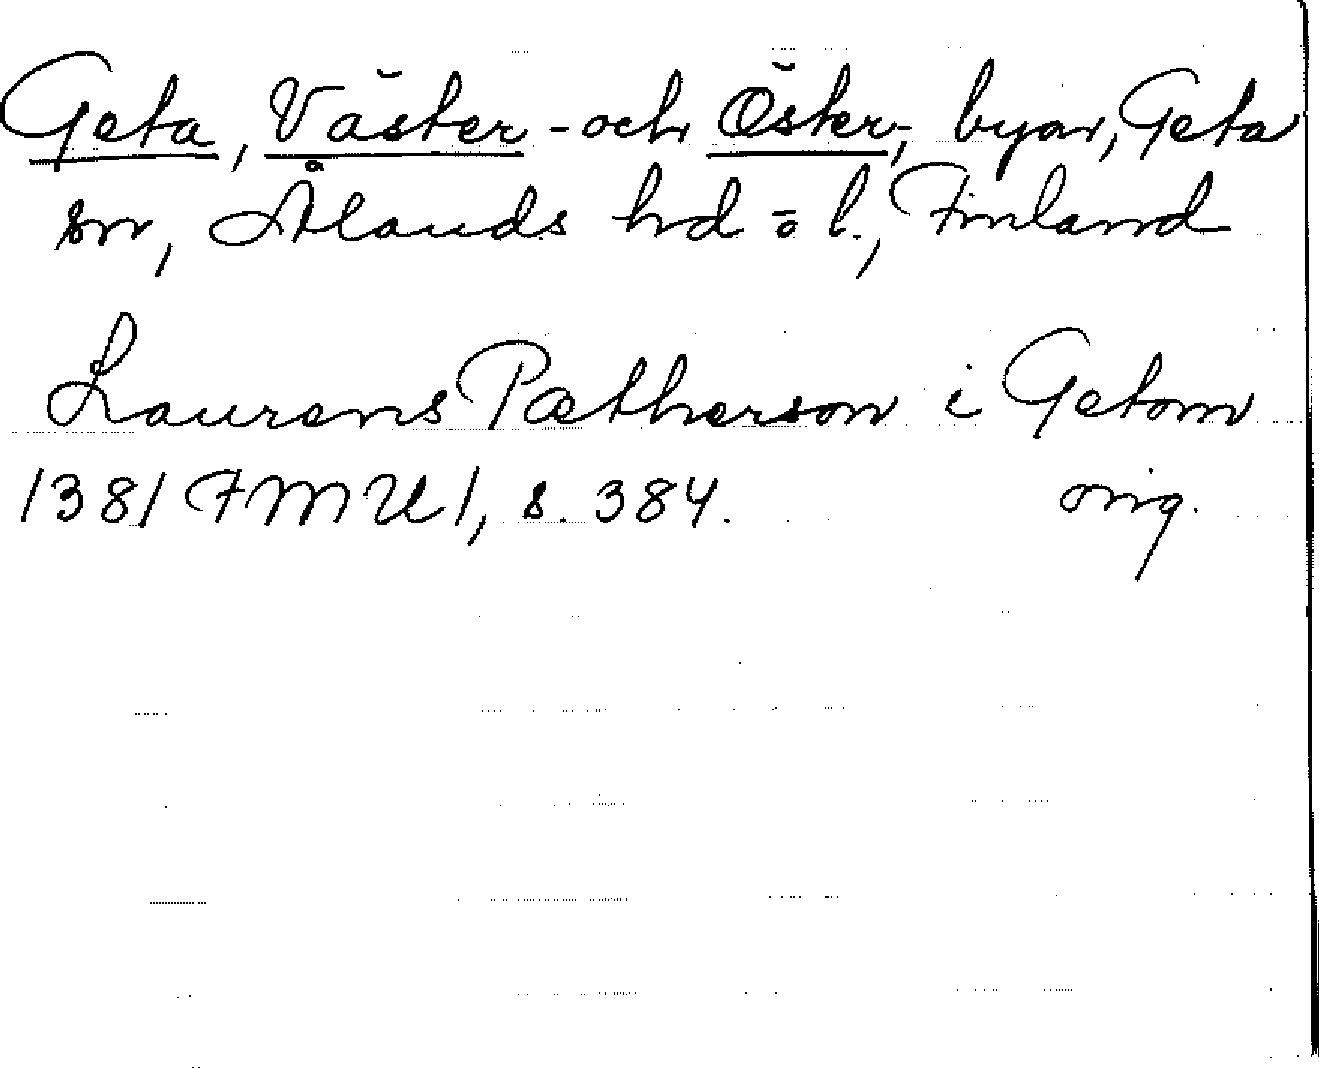 Geta, Väster- och Öster-, byar, Geta
sn, Ålands hd o l., Finland
Laurens Pætherson i Getom
1381 FMU 1, s. 384. orig.